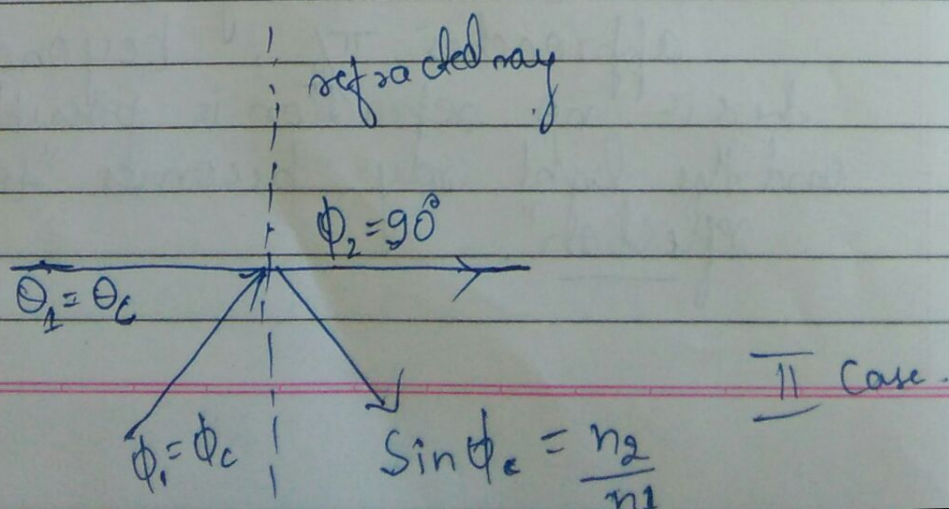 refracted ray
ϕ₂ = 90°
θ₁ = θc
II Case.
ϕ₁ = ϕc
Sin ϕc = n2/n1